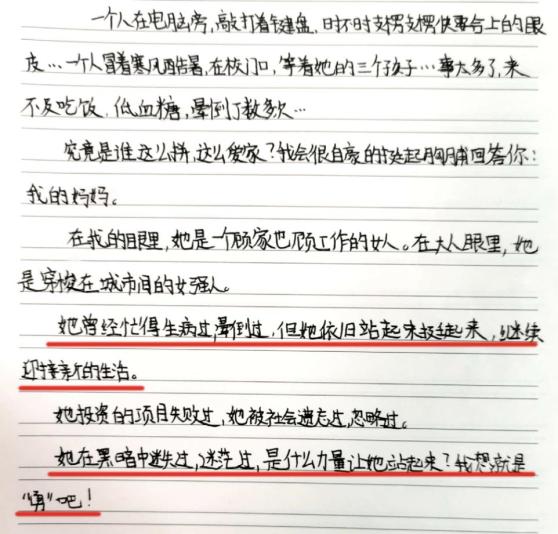 一个人在电脑旁，敲打着键盘，时不时支楞支楞快要合上的眼
皮…一个人冒着寒风酷暑，在校门口，等着她的三个孩子…事太多了，来
不及吃饭，低血糖，晕倒了数多次…
究竟是谁这么拼，这么爱家？我会很自豪的挺起胸脯回答你：
我的妈妈。
在我的眼里，她是一个顾家也顾工作的女人。在大人眼里，她
是穿梭在城市间的女强人。
她曾经忙得生病过，晕倒过，但她依旧站起来挺起来，继续
迎接新的生活。
她投资的项目失败过，她被社会遗忘过，忽略过。
她在黑暗中迷失过，迷茫过，是什么力量让她站起来？我想就是
“勇”吧！